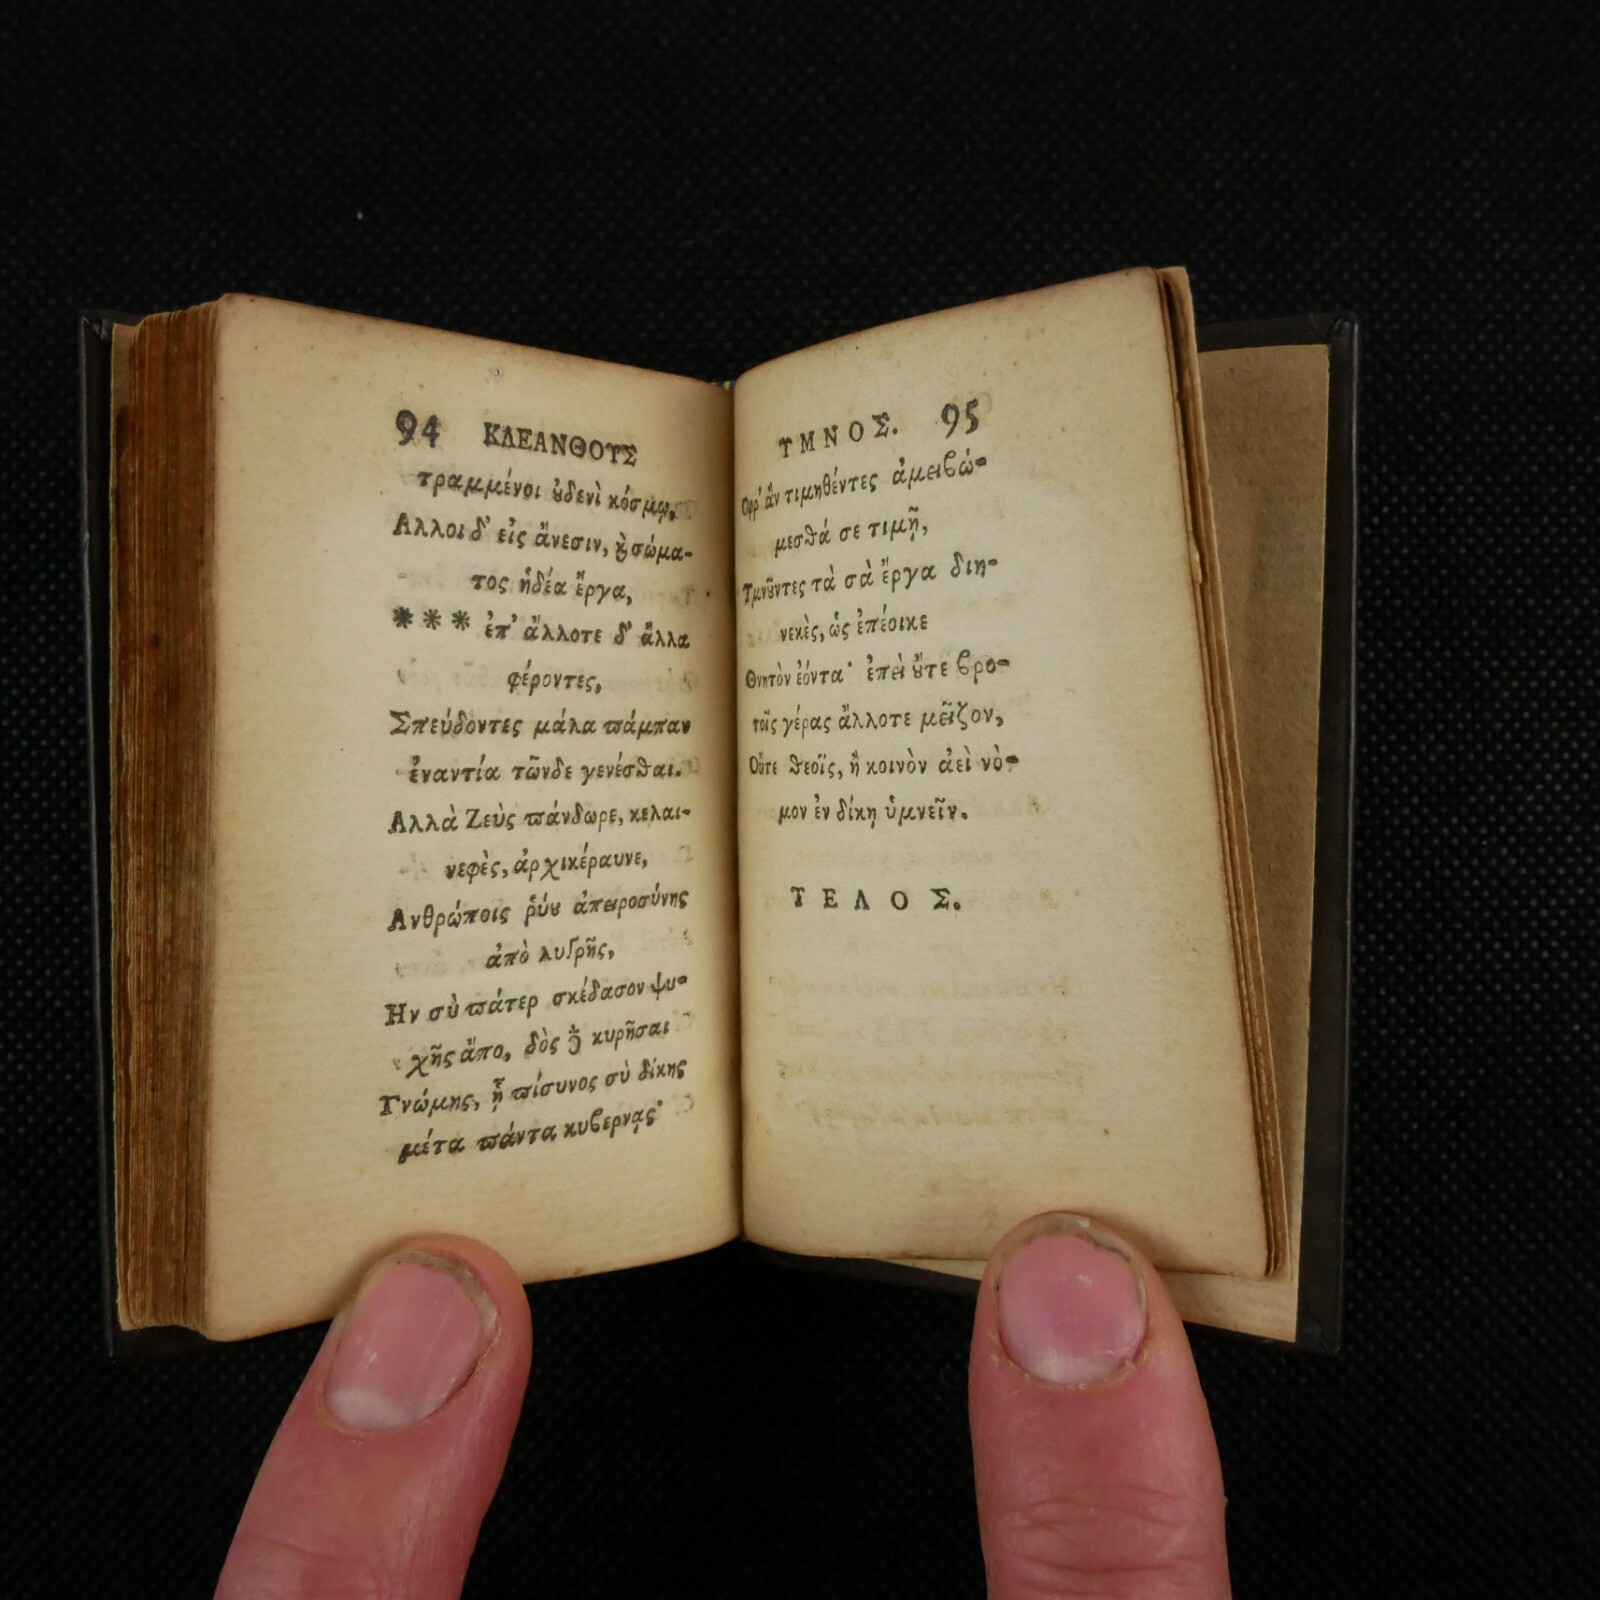 94 ΚΛΕΑΝΘΟΥΣ
τραμμένοι ȣ̓δενὶ κόσμῳ,
Αλλοι δ' εἰς ἄνεσιν, ϗ σώμα-
τος ἡδέα ἔργα,
*** ἐπ' ἄλλοτε δ' ἄλλα
φέροντες,
Σπεύδοντες μάλα ϖάμπαν
ἐναντία τῶνδε γενέσϑαι.
Αλλὰ Ζεὺς ϖάνδωρε, κελαι-
νεφὲς, ἀρχικέραυνε,
Ανθρώποις ῥύȣ ἀπειροσύνης
ἀπὸ λυγρῆς,
Ην σὺ ϖάτερ σκέδασον ψυ-
χῆς ἄπο, δὸς δ̓ κυρῆσαι
Γνώμης, ᾗ ϖίσυνος σὺ δίκης
μέτα ϖάντα κυϐερνᾳς·
ΥΜΝΟΣ. 95
Οφρ' ἂν τιμηθέντες ἀμειϐώ-
μεσϑά σε τιμῇ,
Υμνȣ͂ντες τὰ σὰ ἔργα διη-
νεκὲς, ὡς ἐπέοικε
Θνητὸν ἐόντα· ἐπεὶ ȣ̓́τε ϐρο-
τοῖς γέρας ἄλλοτε μεῖζον,
Οὔτε ϑεοῖς, ἢ κοινὸν ἀεὶ νὸ-
μον ἐν δίκῃ ὑμνεῖν.
ΤΕΛΟΣ.